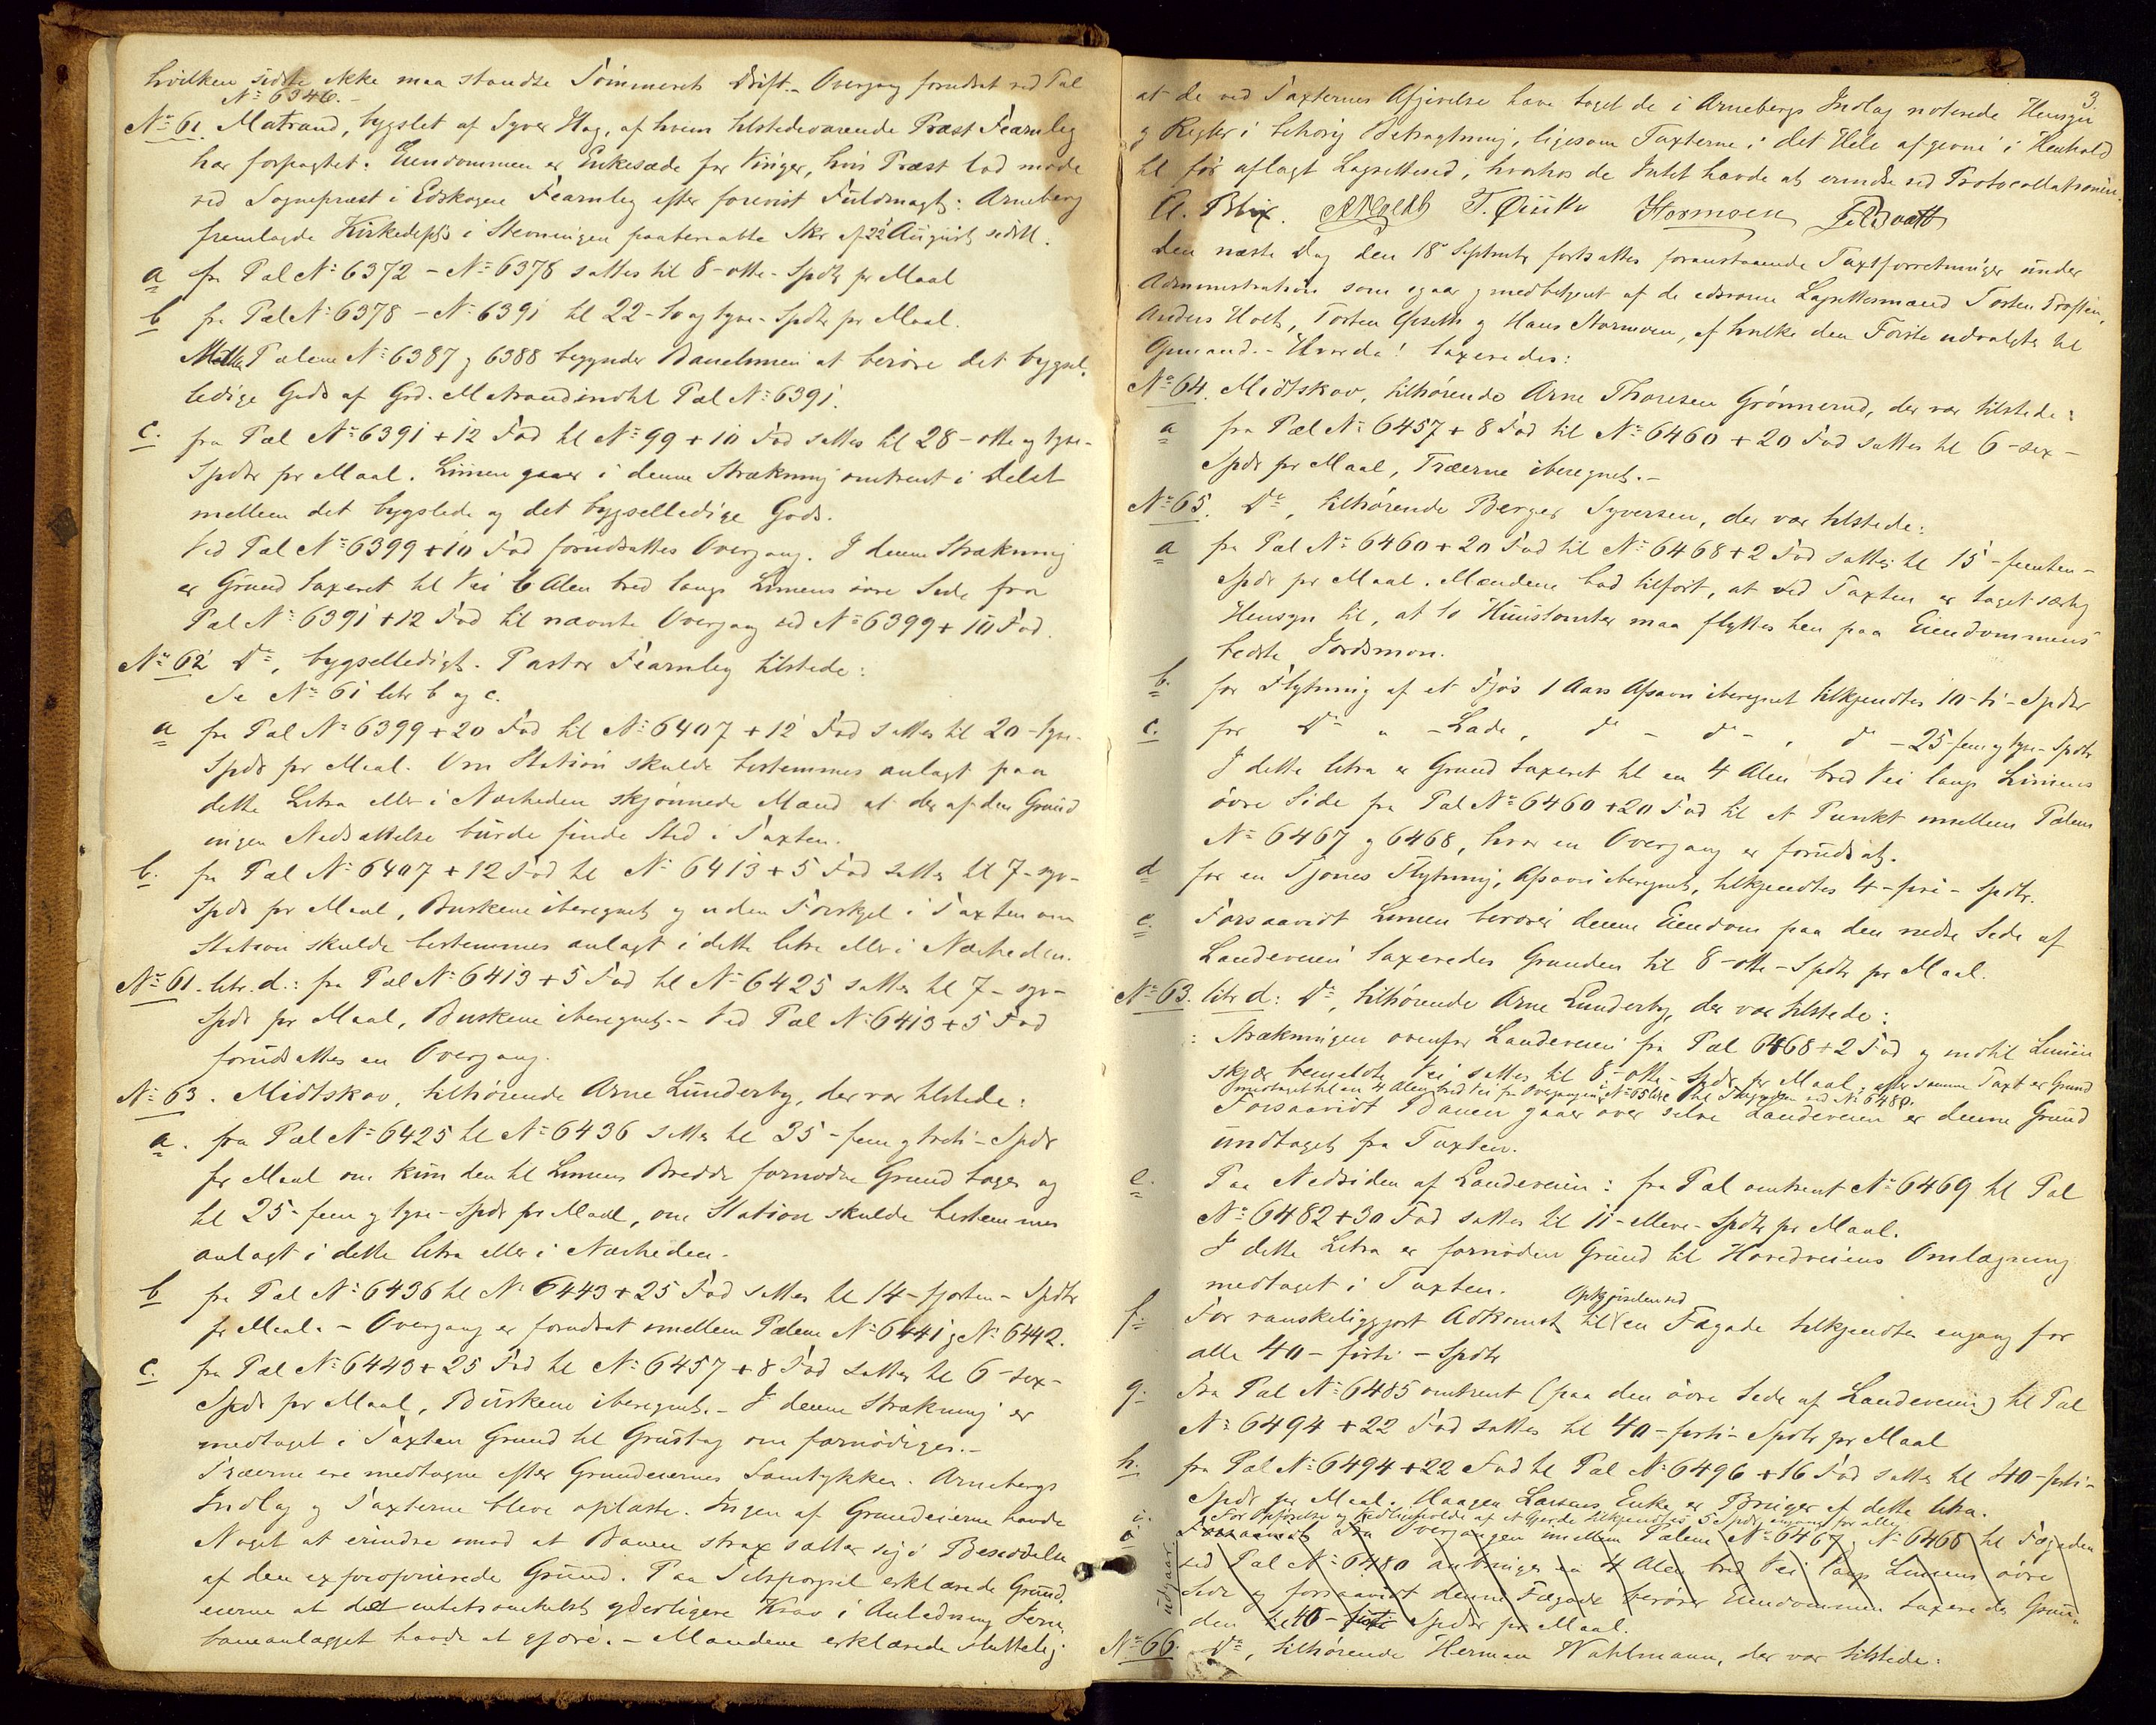 hvilken sidste ikke maa standse Tømmerets Drift. - Overgang forudsat ved Pæl
№ 6346. -
№ 61. Matrand, bygslet af Syver Hag, af hvem tilstedeværende Præst Fearnley
har forpagtet. Eiendommen er Enkesæde for Vinger, hvis Præst lod møde
ved Sognepræst i Edskogen Fearnley efter forevist Fuldmagt: Arneberg
fremlagde Kirkedepts i Stevningen paaberaabte Skr af 22 August sidstl.
a fra Pæl № 6372 - № 6378 sattes til 8 - otte - Spdlr pr Maal
b fra Pæl № 6378 - № 6391 til 22 - to og tyve - Spdlr pr Maal.
Mellem Pælene № 6387 og 6388 begynder Banelinien at berøre det bygsel-
ledige Gods af Grd. Matrand indtil Pæl № 6391.
c. fra Pæl № 6391 + 12 Fod til № 99 + 10 Fod sattes til 28 - otte og tyve -
Spdlr pr Maal. Linien gaaer i denne Strækning omtrent i Delet
mellem det bygslede og det bygselledige Gods.
Ved Pæl № 6399 + 10 Fod forudsattes Overgang. I denne Strækning
er Grund taxeret til Vei 6 Alen bred langs Liniens øvre Side fra
Pæl № 6391 + 12 Fod til nævnte Overgang ved № 6399 + 10 Fod.
№ 62 Do, bygselledigt. Pastor Fearnley tilstede:
Se № 61 litr b og c.
a fra Pæl № 6399 + 20 Fod til № 6407 + 12 Fod sattes til 20 - tyve -
Spdlr pr Maal. Om Station skulde bestemmes anlagt paa
dette Litra eller i Nærheden skjønnede Mænd at der af den Grund
ingen Nedsættelse burde finde Sted i Taxten.
b. fra Pæl № 6407 + 12 Fod til № 6413 + 5 Fod sattes til 7 - syv -
Spdlr pr Maal, Buskene iberegnet og uden Forskjel i Taxten om
Station skulde bestemmes anlagt i dette litra eller i Nærheden.
№ 61. litr. d.: fra Pæl № 6413 + 5 Fod til № 6425 sattes til 7 - syv -
Spdlr pr Maal, Buskene iberegnet. - Ved Pæl № 6413 + 5 Fod
forudsattes en Overgang.
№ 63. Midtskov, tilhørende Arne Lunderby, der var tilstede:
a. fra Pæl № 6425 til № 6436 sattes til 35 - fem og treti - Spdlr
pr Maal om kun den til Liniens Bredde fornødne Grund tages og
til 25 - fem og tyve - Spdlr pr Maal, om Station skulde bestemmes
anlagt i dette litra eller i Nærheden.
b fra Pæl № 6436 til № 6443 + 25 Fod sattes til 14 - fjorten - Spdlr
pr Maal. - Overgang er forudsat mellem Pælene № 6441 og № 6442.
c. fra Pæl № 6443 + 25 Fod til № 6457 + 8 Fod sattes til 6 - sex -
Spdlr pr Maal, Buskene iberegnet. - I denne Strækning er
medtaget i Taxten Grund til Grustag om fornødiges. -
Træerne ere medtagne efter Grundeiernes Samtykke. Arnebergs
Indlag og Taxterne bleve oplæste. Ingen af Grundeierne havde
Noget at erindre mod at Banen strax sætter sig i Besiddelse
af den exproprierede Grund. Paa Tilspørgsel erklærede Grund-
eierne at de intetsomhelst yderligere Krav i Anledning Jern-
baneanlægget havde at gjøre. - Mændene erklærede sluttelig
3.
at de ved Taxternes Afgivelse have taget de i Arnebergs Indlag noterede Hensyn
og Regler i behørig Betragtning, ligesom Taxterne i det Hele afgivne i Henhold
til før aflagt Lagrettesed, hvorhos de Intet havde at erindre ved Protocollationen.
A. Blix. T. Hormoen
Den næste Dag den 18de Septembr fortsattes foranstaaende Taxtforretninger under
Administration som igaar og medbetjent af de edsvorne Lagrettesmænd Torsten
Anders Holt, Torsten og Hans Stormoen, af hvilke den Første udvalgtes til
Opmand. - Hvorda! taxeredes:
№ 64. Midtskov, tilhørende Arne Thoresen Grønnerud, der var tilstede:
a fra Pæl № 6457 + 8 Fod til № 6460 + 20 Fod sattes til 6 - sex -
Spdlr pr Maal, Træerne iberegnet. -
№ 65. Do, tilhørende Berger Syversen, der var tilstede:
a fra Pæl № 6460 + 20 Fod til № 6468 + 2 Fod sattes til 15 - femten -
Spdlr pr Maal. Mændene bad tilført, at ved Taxten er taget særlig
Hensyn til, at to Huustomter maa flyttes hen paa Eiendommens
bedste Jordsmon.
b. for Flytning af et Fjøs 1 Aars Afsavn iberegnet tilkjendtes 10 - ti - Spdlr
c. for Do " - Lade, do - do - , do - 25 - fem og tyve - Spdlr
I dette litra er Grund taxeret til en 4 Alen bred Vei langs Liniens
øvre Side fra Pæl № 6460 + 20 Fod til et Punkt mellem Pælene
№ 6467 og 6468, hvor en Overgang er forudsat.
d for en Tjones Flytning, Afsavn iberegnet, tilkjendtes 4 - fire - Spdlr.
e. Forsaavidt Linien berører denne Eiendom paa den nedre Side af
Landeveien taxeredes Grunden til 8 - otte - Spdlr pr Maal.
№ 63. litr d: Do, tilhørende Arne Lunderby, der var tilstede:
: Strækningen ovenfor Landeveien fra Pæl 6468 + 2 Fod og indtil Linien
skjær bemeldte Vei sattes til 8 - otte - Spdlr pr Maal; efter samme Taxt er Grund
medtaget til en 4 Alen bred Vei fra Overgangen i № 65 til Fægaden ved № 6480.
Forsaavidt Banen gaaer over selve Landeveien er denne Grund
undtaget fra Taxten.
e. Paa Nedsiden af Landeveien: fra Pæl omtrent № 6469 til Pæl
№ 6482 + 30 Fod sattes til 11 - elleve - Spdlr pr Maal.
I dette Litra er fornøden Grund til Hovedveiens Omlægning
medtaget i Taxten.
Opkjørselen ved
f For vanskeliggjort Adkomst til en Fægade tilkjendtes engang for
alle 40 - førti - Spdlr
g. Fra Pæl № 6485 omtrent (paa den øvre Side af Landeveien) til Pæl
№ 6494 + 22 Fod sattes til 40 - førti - Spdlr pr Maal
h. fra Pæl № 6494 + 22 Fod til Pæl № 6496 + 16 Fod sattes til 40 - førti -
Spdlr pr Maal. Haagen Larsens Enke er Bruger af dette litra.
i. For Opførelse og Vedligeholdelse af et Gjerde tilkjendtes 5 Spdlr engang for alle.
i Forsaavidt fra Overgangen mellem Pælene № 6467 og № 6468 til Fægaden
ved Pæl № 6480 anbringes en 4 Alen bred Vei langs Liniens øvre
Side og forsaavidt denne Fægade berører Eiendommen taxeredes Grun-
den til 40 - førti - Spdlr pr Maal.
udgaar.
№ 66. Do, tilhørende Herman Wahlmann, der var tilstede: